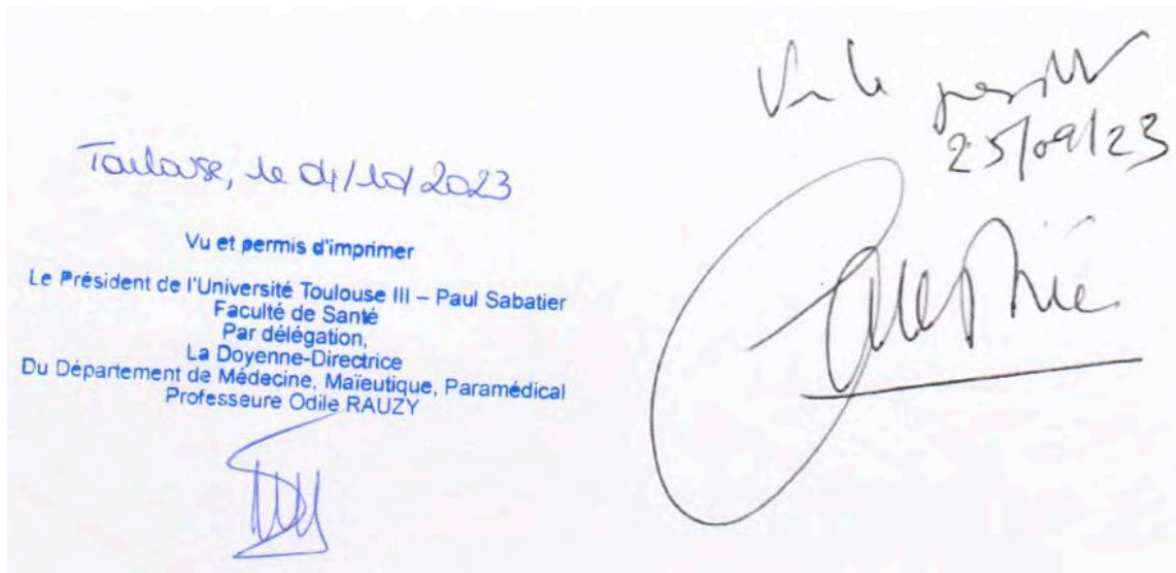 Toulouse, le 04/10/2023
Vu et permis d'imprimer
Le Président de l'Université Toulouse III – Paul Sabatier
Faculté de Santé
Par délégation,
La Doyenne-Directrice
Du Département de Médecine, Maïeutique, Paramédical
Professeure Odile RAUZY
Vu le
25/09/23